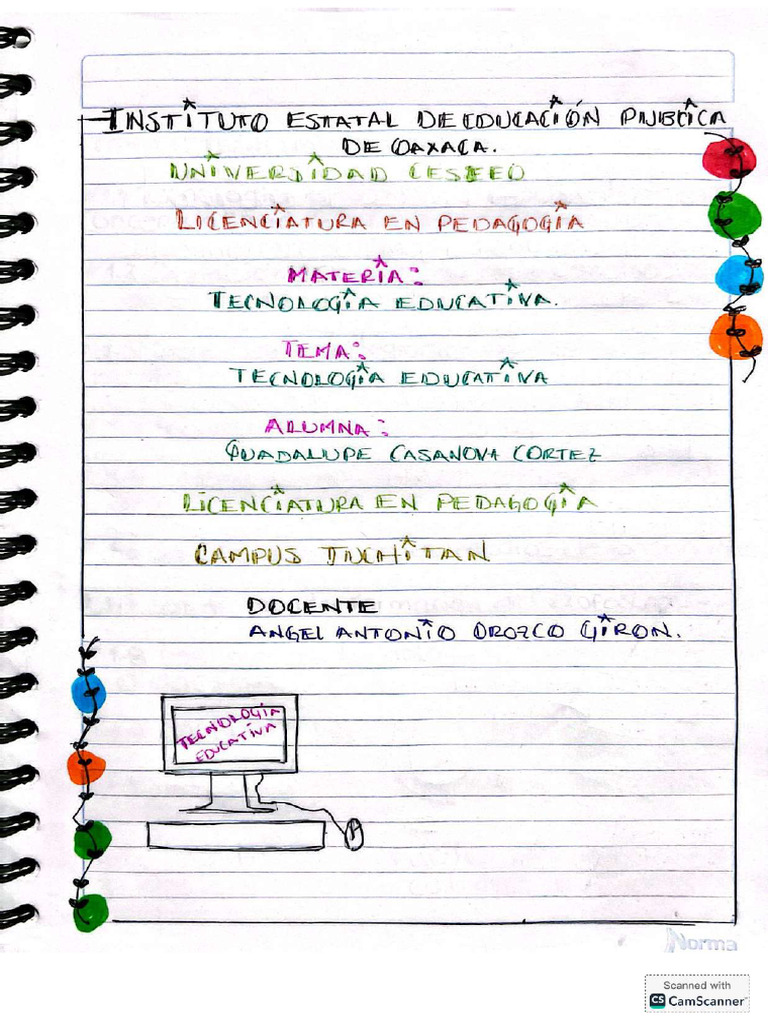 INSTITUTO ESTATAL DE EDUCACIÓN PUBLICA
DE OAXACA.
UNIVERSIDAD CESEEO
LICENCIATURA EN PEDAGOGIA
MATERIA:
TECNOLOGIA EDUCATIVA.
TEMA:
TECNOLOGIA EDUCATIVA
ALUMNA:
GUADALUPE CASANOVA CORTEZ
LICENCIATURA EN PEDAGOGIA
CAMPUS JUCHITAN
DOCENTE
ANGEL ANTONIO OROZCO GIRON.
TECNOLOGIA
EDUCATIVA
Norma
Scanned with
CS CamScanner